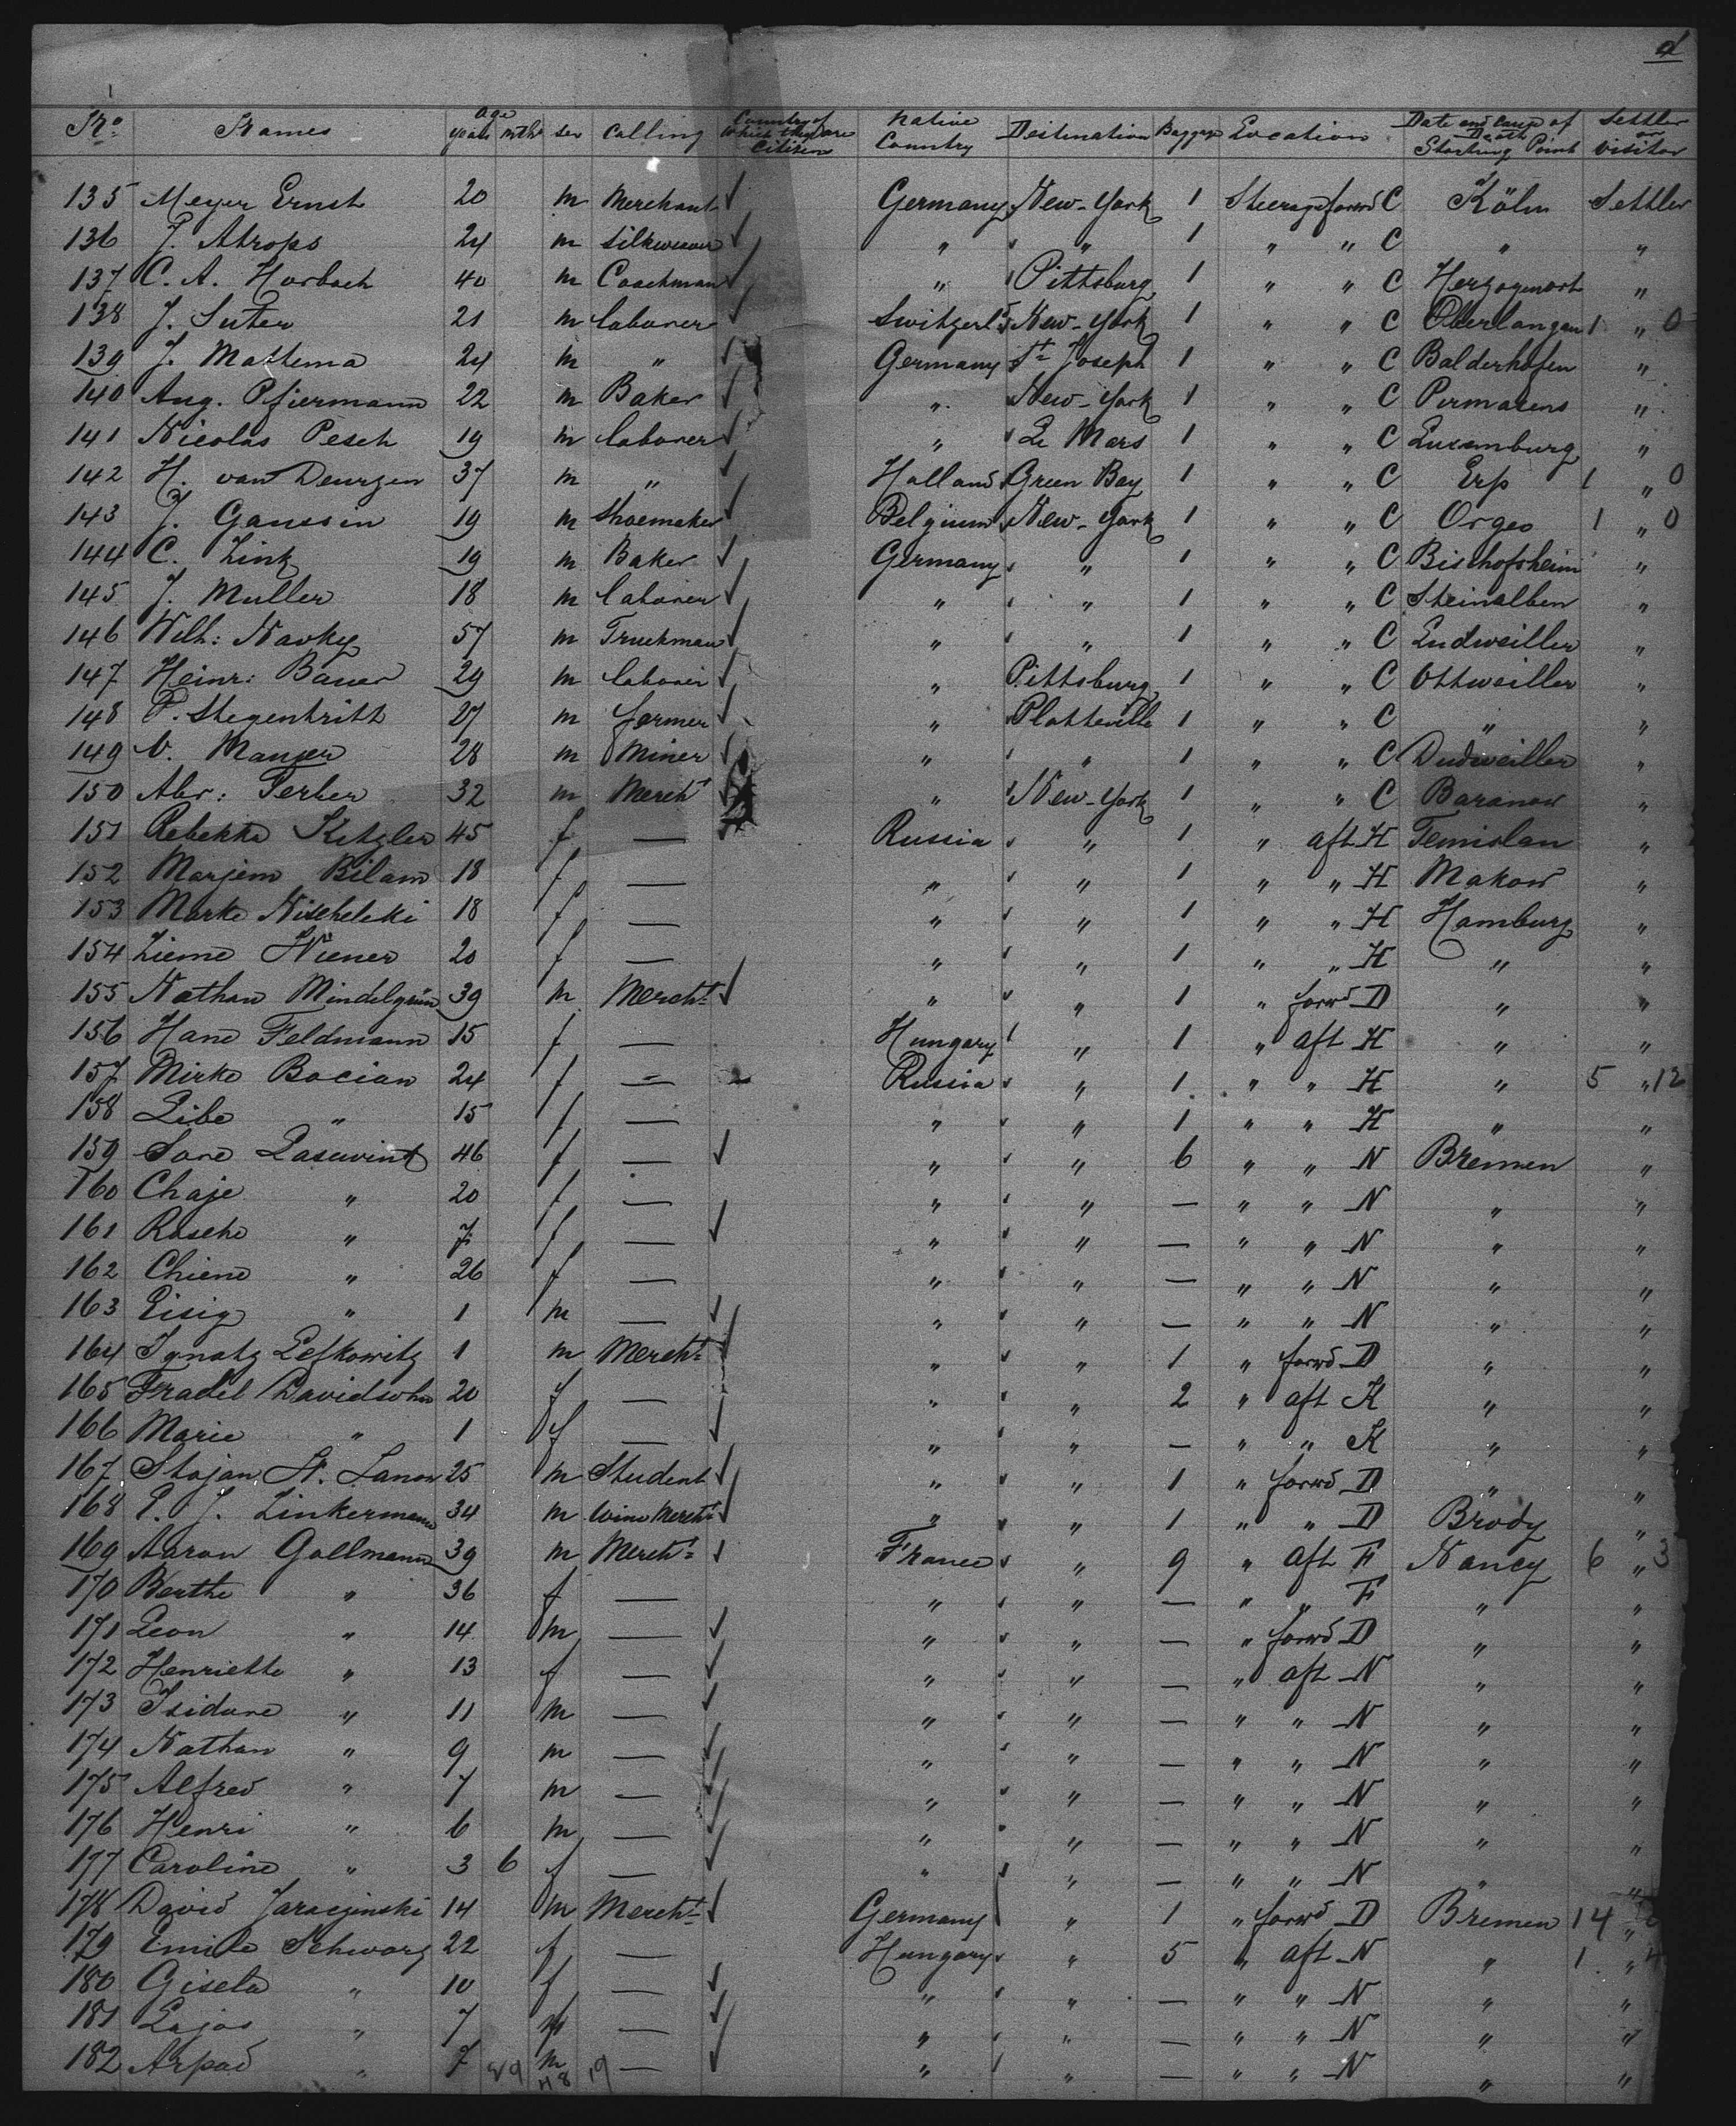 d
No. Names Age years mths sex Calling Country of which they are Citizens Native Country Destination Baggage Location Date and Cause of Death Starting Point Settler or visitor
135 Meyer Ernst 20 m Merchant Germany New-York 1 Steerage forwd C Köln Settler
136 J. Atrops 24 m Silkweaver " " 1 " " C " "
137 C. A. Horbach 40 m Coachman " Pittsburg 1 " " C "
138 J. Suter 21 m laborer Switzerld New-York 1 " " C Oberlangen 1 " 0
139 J. Mattema 24 m " Germany St Joseph 1 " " C Balderhofen "
140 Aug. Pfiermann 22 m Baker " New-York 1 " " C Pirmasens "
141 Nicolas Pesch 19 m laborer " Le Mars 1 " " C Luxemburg "
142 H. van Deurzen 37 m " Holland Green Bay 1 " " C Erp 1 " 0
143 J. Gaussin 19 m Shoemaker Belgium New-York 1 " " C Orgeo 1 " 0
144 C. Link 19 m Baker Germany " 1 " " C Bischofsheim "
145 J. Muller 18 m laborer " " 1 " " C Steinalben "
146 Wilh: Navky 57 m Truckman " " 1 " " C Ludweiller "
147 Heinr: Bauer 29 m laborer " Pittsburg 1 " " C Ottweiller "
148 P. Stegentritt 27 m farmer " Platteville 1 " " C " "
149 V. Maurer 28 m Miner " " 1 " " C Dudweiller "
150 Abr: Ferber 32 m Mercht " New-York 1 " " C Baranow "
151 Rebekka Kitzler 45 f — Russia " 1 " aft H "
152 Marjem Bilam 18 f — " " 1 " " H Makow "
153 Marke Nischelski 18 f — " " 1 " " H Hamburg "
154 Zieme Wiener 20 f — " " 1 " " H " "
155 Nathan Mindelgrün 39 m Mercht " " 1 " forwd D " "
156 Hane Feldmann 15 f — Hungary " 1 " aft H " "
157 Mirke Bocian 24 f — Russia " 1 " " H " 5 " 12
158 Libe " 15 f — " " 1 " " H " "
159 Sore Lasewint 46 f — " " 6 " " N Bremen "
160 Chaje " 20 f — " " — " " N " "
161 Rasche " 7 f — " " — " " N " "
162 Chiene " 26 f — " " — " " N " "
163 Eisig " 1 m — " " — " " N " "
164 Ignatz Lefkowitz 1 m Mercht " " 1 " forwd D " "
165 Fradel Davidsohn 20 f — " " 2 " aft K " "
166 Marie " 1 f — " " — " " K " "
167 Stojan St. Lanow 25 m Student " " 1 " forwd D " "
168 P. J. Zinkermann 34 m Wine Mercht " " 1 " " D Brody "
169 Aaron Gollmann 39 m Mercht France " 9 " aft F Nancy 6 " 3
170 Berthe " 36 f — " " — " " F " "
171 Leon " 14 m — " " — " forwd D " "
172 Henriette " 13 f — " " — " aft N " "
173 Isidore " 11 m — " " — " " N " "
174 Nathan " 9 m — " " — " " N " "
175 Alfred " 7 m — " " — " " N " "
176 Henri " 6 m — " " — " " N " "
177 Caroline " 3 6 f — " " — " " N " "
178 David Jaraczinski 14 m Mercht Germany " 1 " forwd D Bremen 14 "
179 Emile Schwarz 22 f — Hungary " 5 " aft N " 1 " 4
180 Gisela " 10 f — " " — " " N " "
181 Lajos " 7 m — " " — " " N " "
182 Arpad " 7 m — " " — " " N " "
48 19